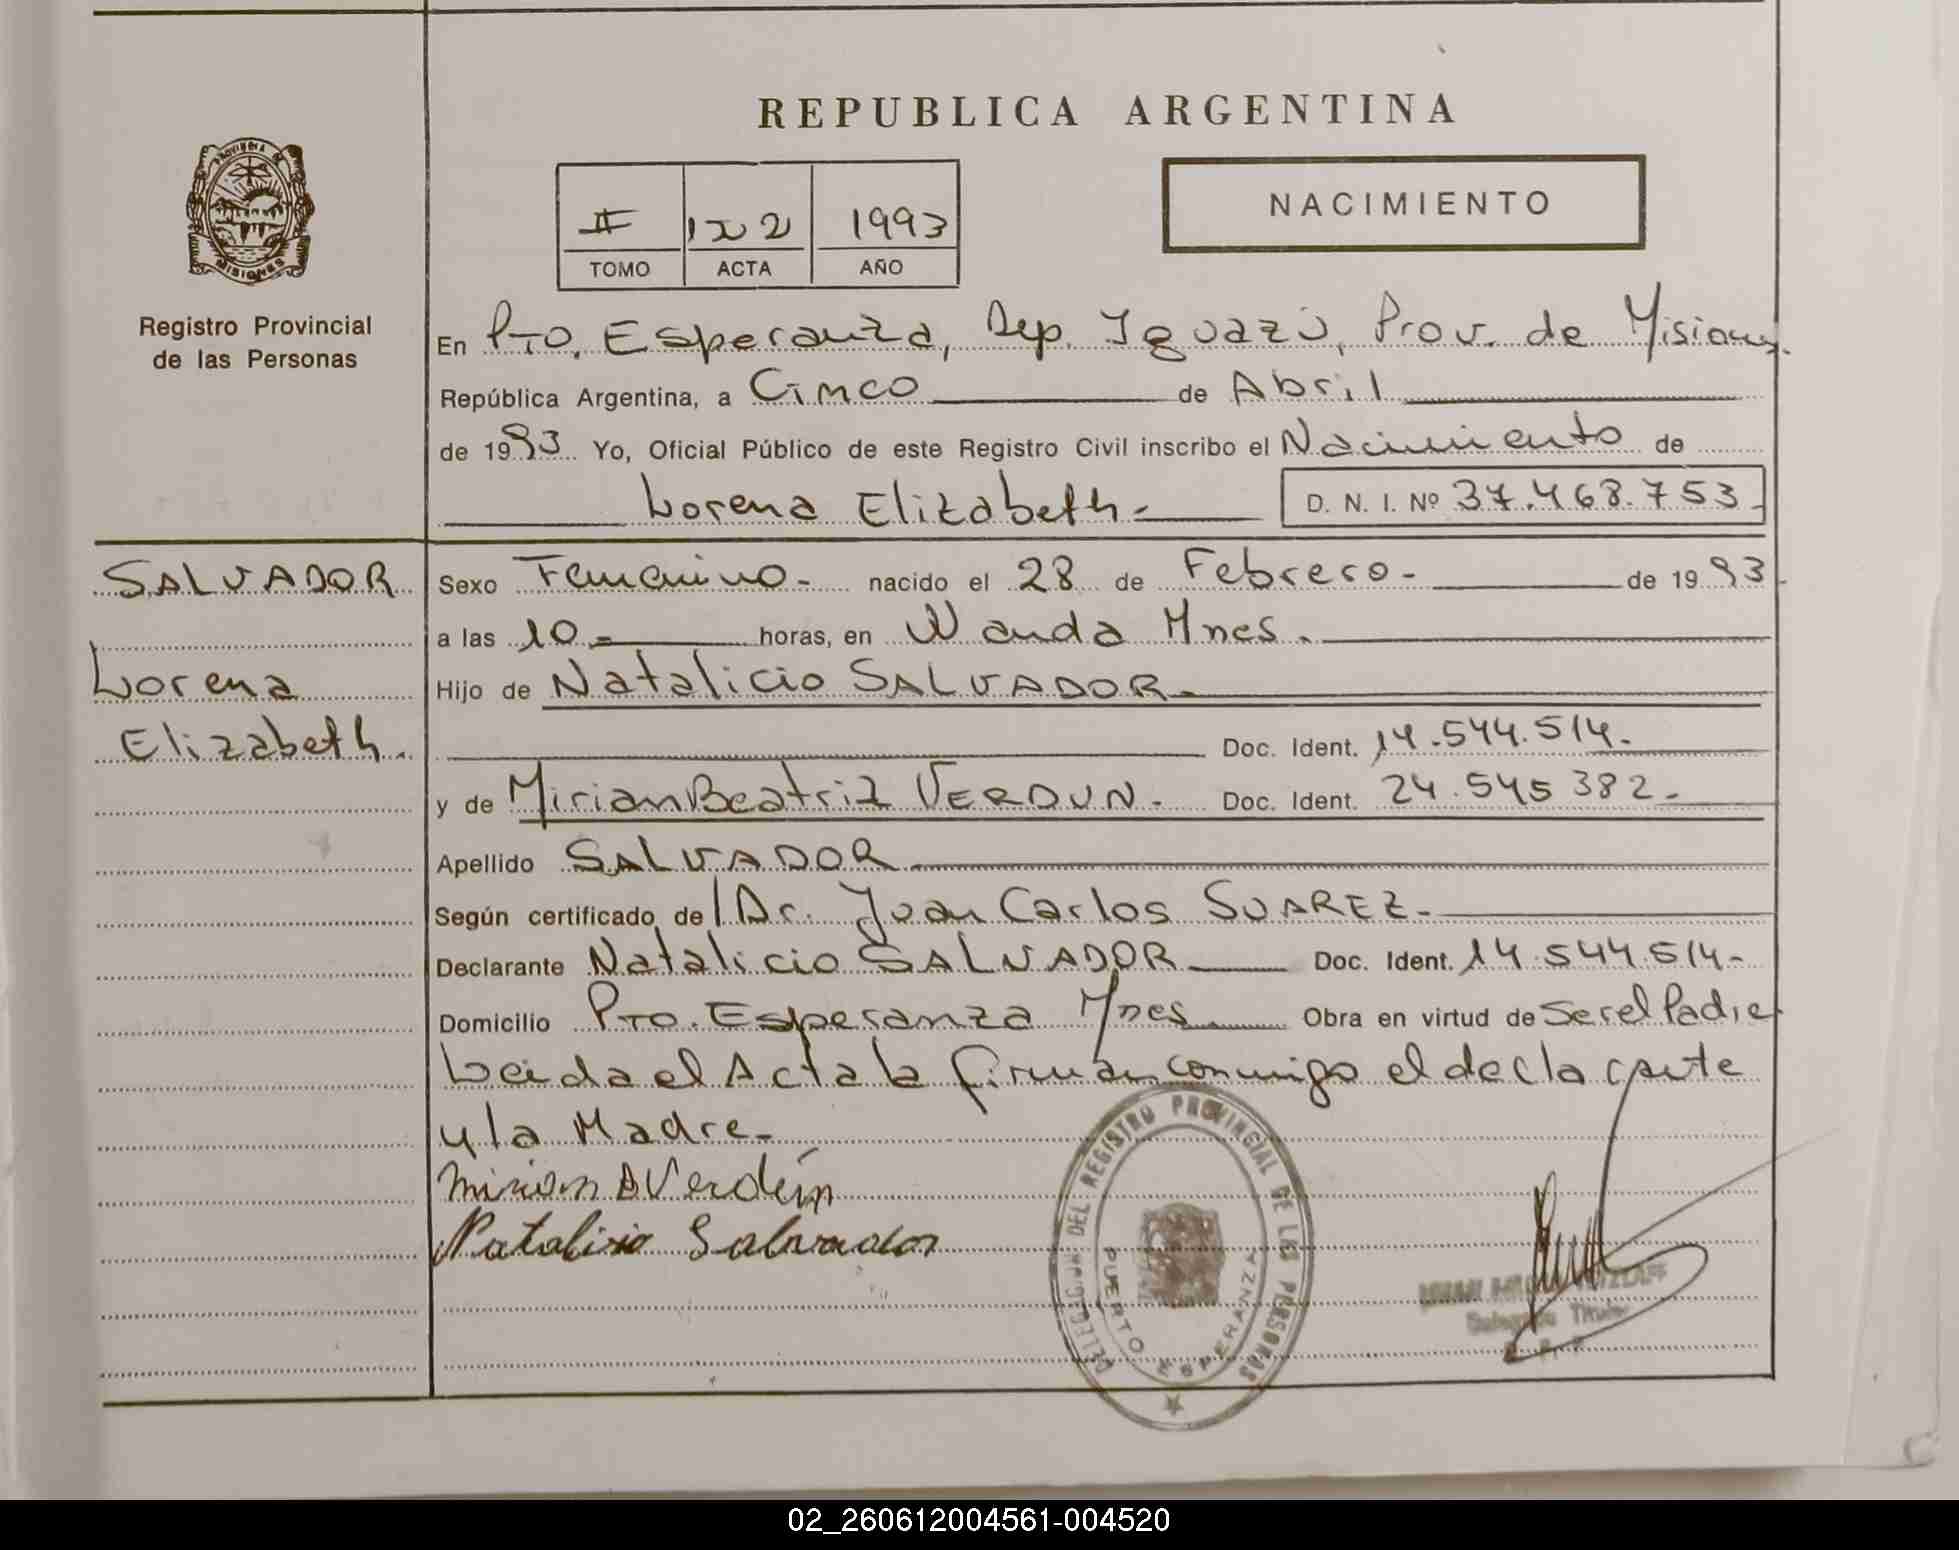 REPUBLICA ARGENTINA
PROVINCIA DE
MISIONES
Registro Provincial
de las Personas
II 122 1993
TOMO ACTA AÑO
NACIMIENTO
En Pto. Esperanza, Dep. Iguazú, Prov. de Misiones.
República Argentina, a Cinco de Abril
de 1993 Yo, Oficial Público de este Registro Civil inscribo el Nacimiento de
Lorena Elizabeth.- D. N. I. Nº 37.468.753.
SALVADOR
Lorena
Elizabeth.
Sexo Femenino- nacido el 28 de Febrero- de 1993
a las 10.- horas, en Wanda Mnes.
Hijo de Natalicio SALVADOR.
Doc. Ident. 14.544.514.
y de Mirian Beatriz VERDUN. Doc. Ident. 24.545 382.-
Apellido SALVADOR
Según certificado, del Dr. Juan Carlos SUAREZ.
Declarante Natalicio SALVADOR Doc. Ident. 14.544.514-
Domicilio Pto. Esperanza Mnes. Obra en virtud de Ser el Padre
Leida el Acta la firman conmigo el declarante
y la Madre-
Mirian B Verdún
Natalicio Salvador
DELEGACION DEL REGISTRO PROVINCIAL DE LAS PERSONAS
PUERTO ESPERANZA
Titular
02_260612004561-004520